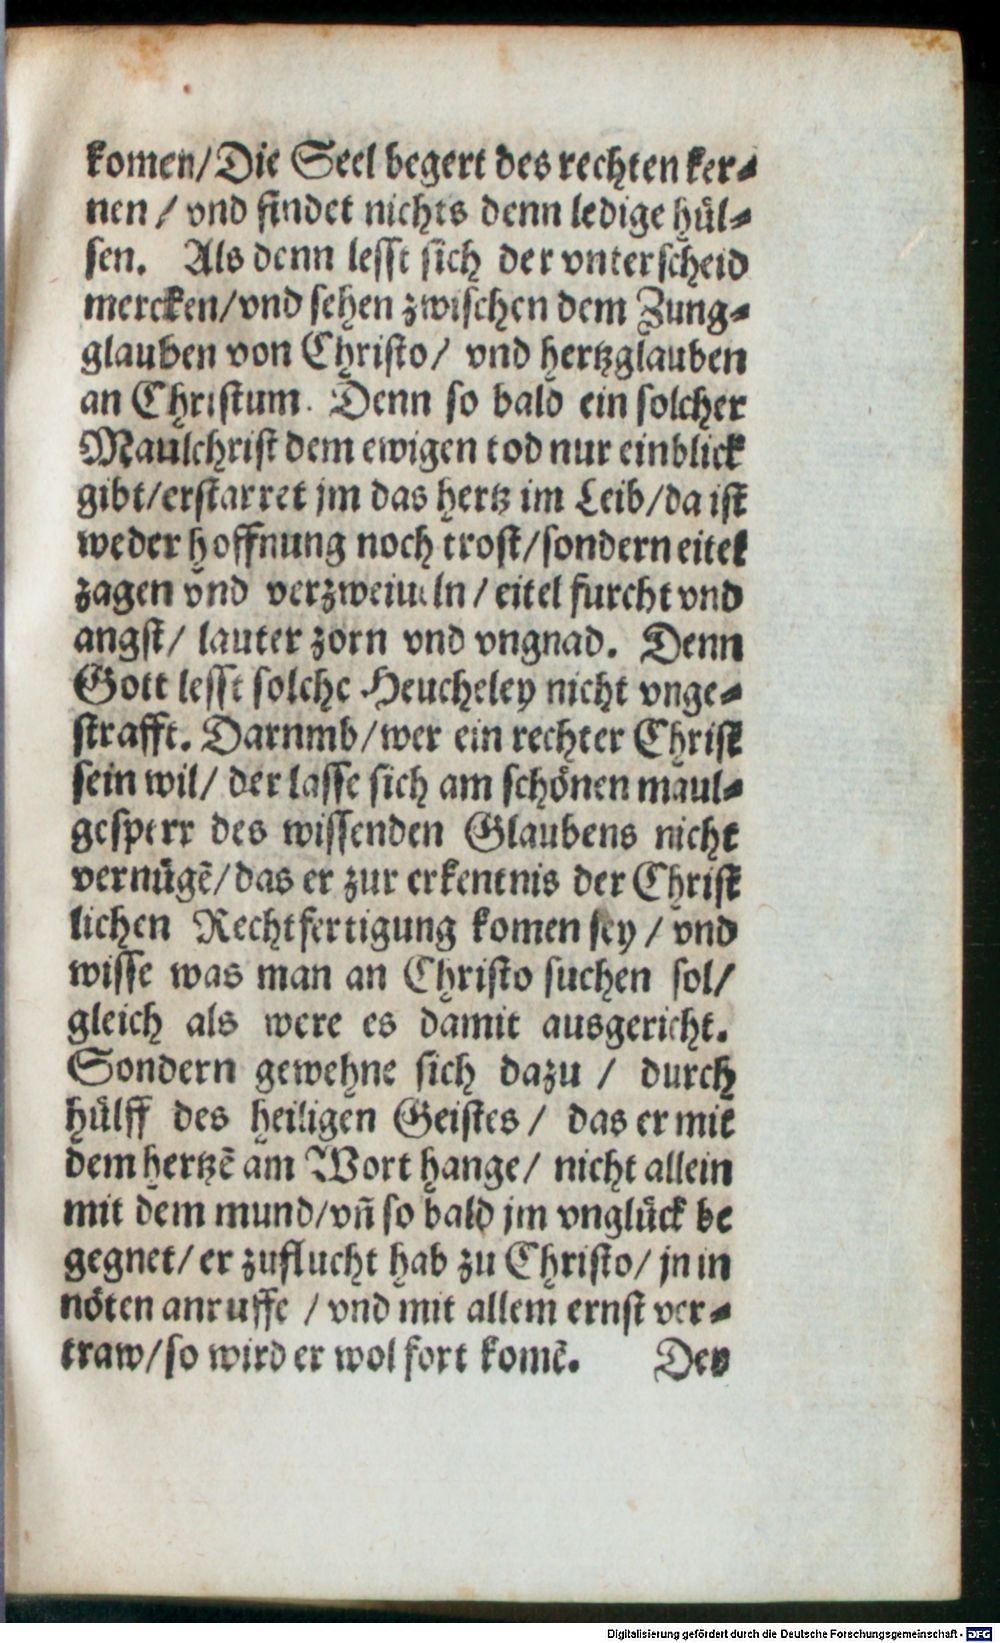 komen/Die Seel begert des rechten ker⸗
nen / vnd findet nichts denn ledige hül⸗
sen. Als denn lesst sich der vnterscheid
mercken/vnd sehen zwischen dem Zung⸗
glauben von Christo/ vnd hertzglauben
an Christum. Denn so bald ein solcher
Maulchrist dem ewigen tod nur einblick
gibt/erstarret jm das hertz im Leib/da ist
weder hoffnung noch trost/sondern eitel
zagen vnd verzweiueln / eitel furcht vnd
angst/ lauter zorn vnd vngnad. Denn
Gott lesst solche Heucheley nicht vnge⸗
strafft. Darnmb/wer ein rechter Christ
sein wil/ der lasse sich am schönen maul⸗
gesperr des wissenden Glaubens nicht
vernügē/das er zur erkentnis der Christ
lichen Rechtfertigung komen sey / vnd
wisse was man an Christo suchen sol/
gleich als were es damit ausgericht.
Sondern gewehne sich dazu / durch
hülff des heiligen Geistes/ das er mit
dem hertzē am Wort hange/ nicht allein
mit dem mund/vn̄ so bald jm vnglück be
gegnet/ er zuflucht hab zu Christo/ jn in
nöten anruffe / vnd mit allem ernst ver⸗
traw/so wird er wol fort komē. Dey
Digitalisierung gefördert durch die Deutsche Forschungsgemeinschaft - DFG